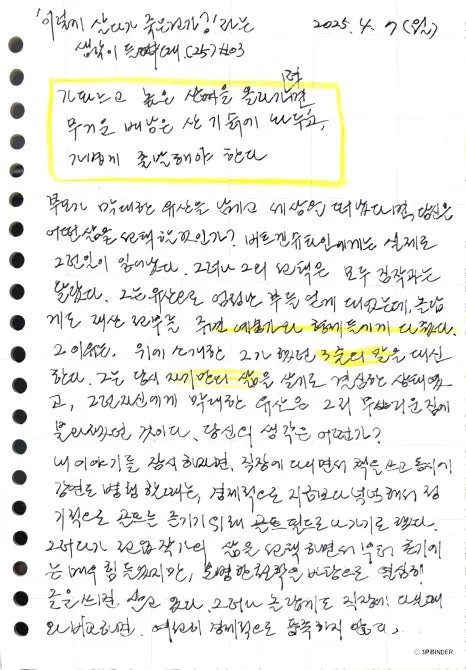 '이렇게 살다가 죽은건가?' 라는
2025. 4. 7 (월)
생각이 들 때 (25) #03
가파르고 높은 산에을 올라가려면
무거운 배낭은 산기슭에 놔두고,
가볍게 출발해야 한다
부모가 막대한 유산을 남기고 세상을 떠났다면, 당신은
어떤 삶을 선택할 것인가? 비트겐슈타인에게는 실제로
그런 일이 일어났다. 그러나 그의 선택은 모두 짐작과는
달랐다. 그는 유산으로 엄청난 부를 얻게 되었는데, 놀랍
게도 재산 전부를 주변 예술가와 형제들에게 다 줬다.
그 이유는, 위에 소개한 그가 했던 3줄의 말을 대신
한다. 그는 당시 자기만의 삶을 살기로 결심한 상태였
고, 그런 자신에게 막대한 유산은 그저 무거운 짐에
불과했던 것이다. 당신의 생각은 어떤가?
내 이야기를 잠시 하자면, 직장에 다니면서 책을 쓰고 동시에
강연도 병행할 때는, 경제적으로 지금보다 넉넉해서 정
기적으로 골프를 즐기기 위해 골프 필드로 나가기로 했다.
그러다가 전업작가의 삶을 선택하면서 부터 초기에
는 매우 힘들었지만, 소명한 철학을 바탕으로 열심히
글을 쓰며 살고 있다. 그러나 놀랍게도 직장에 다닐 때
와 비교하면, 여전히 경제적으로 풍족하지 않다.
© 3P BINDER